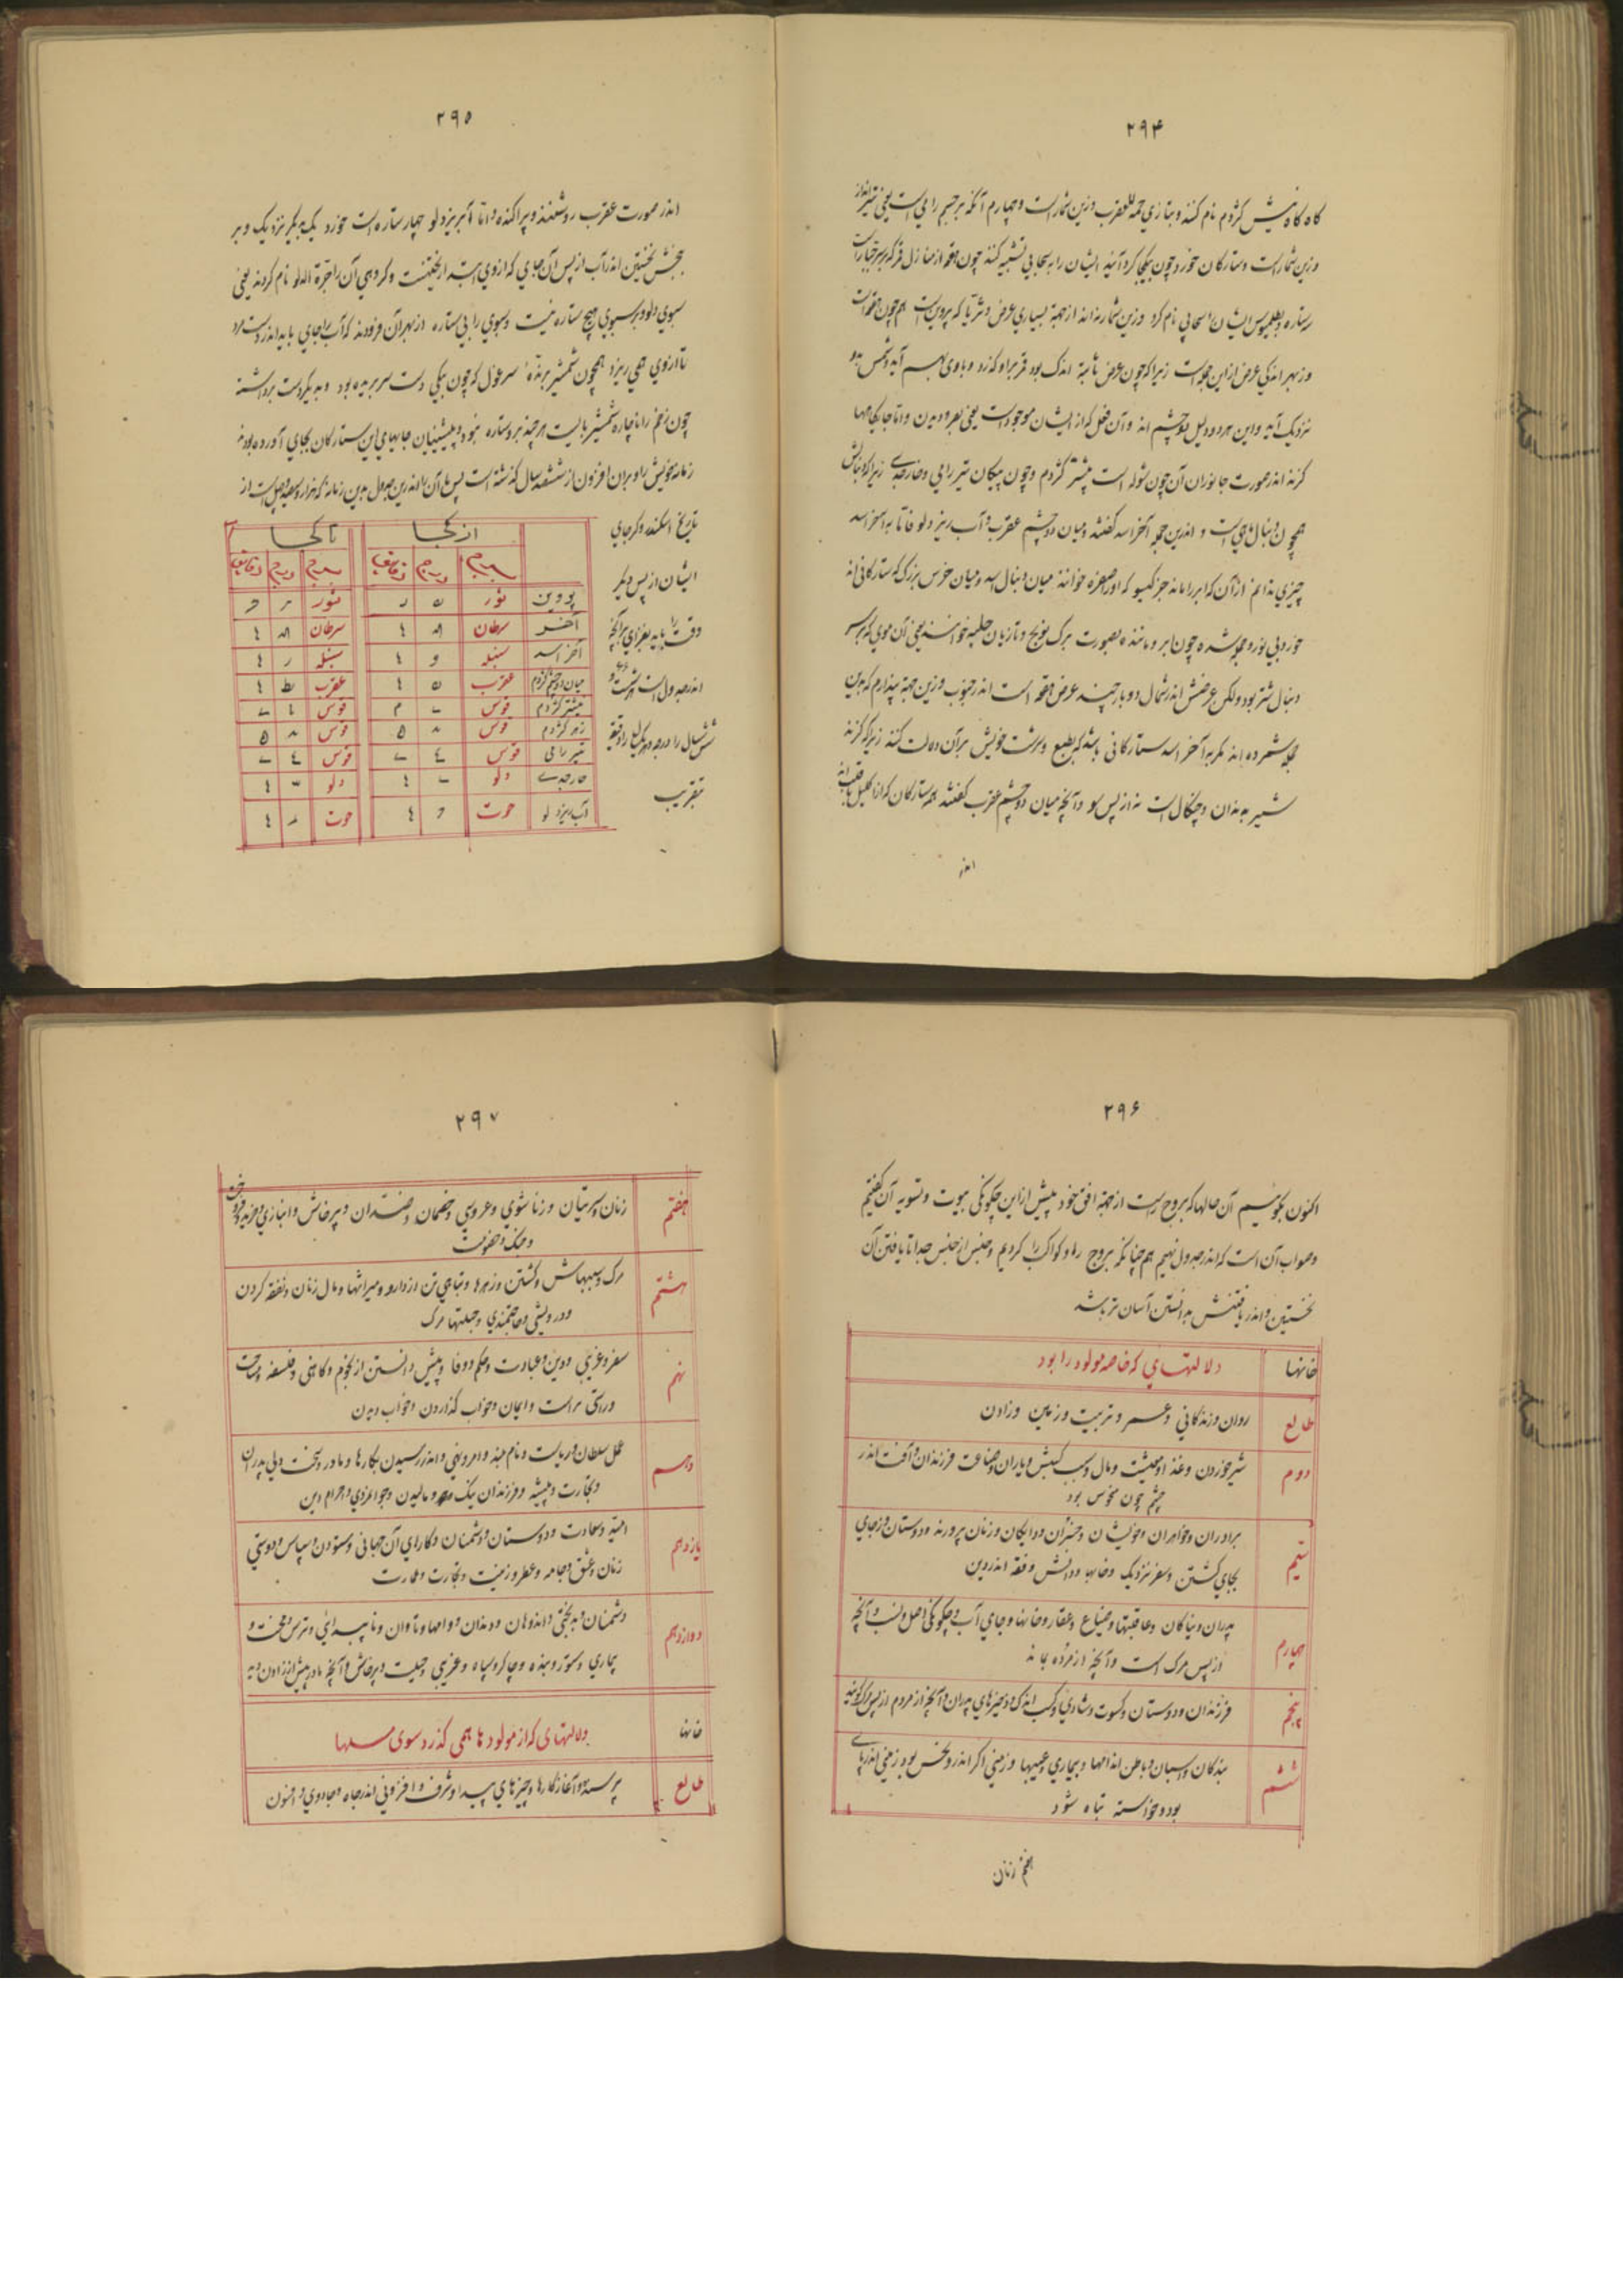 ۲۹۴
کاه کاه نیش کژدم نام کنند و بتازی حمة العقرب وزین شمار است و چهارم آنکه بر چشم رامی است یعنی تیرانداز
وزین شمار است و ستارکان خورد چون بیکجا کرد آیند ایشان را بسحابی تشبیه کنند چون هقعه از منازل قمر که بر سر جبار است
سه ستاره و بطلمیوس ایشان را سحابی نام کرد وزین شمار نه اند از جهة بسیاری عرض و ثریا که پروین است هم چون هقعه است
وز بهر اندکی عرض از این جمله است زیرا که چون عرض ثابته اندک بود قمر براو کذرد و باوی بهم آید و شمس بدو
نزدیک آید و این هر دو دلیل دو چشم اند و آن فعل کز ایشان موجود است یعنی بصر و دیدن و اما جایکاهها
کرند اندر صورت جانوران آن چون شوله است نیشتر کژدم و چون پیکان تیر رامی و خار جدی زیراکه دنبالش
همچون دنبال ماهی است و اندرین جمله آخر اسد کفتند و میان دو چشم عقرب و آب ریز دلو فاما به آخر اسد
چیزی ندانم از آن که ابر را ماند جز کیسو که او ضفره خوانند میان دنبال اسد و میان خرس بزرک که ستارکانی اند
خورد بی نور و جمله شده چون ابر و ماننده بصورت برک لویج و تازیان هلبه خوانند یعنی آن موی که بر سر
دنبال شتر بود ولکن عرضش اندر شمال دو بار چند عرض هقعه است اندر جنوب وزین جهة پندارم که بدین
جمله شمرده اند مکر به آخر اسد ستارکانی باشد که بطبع و سرشت خویش بر آن دلالت کنند زیرا که کزند
شیر به دندان و چنکال است نه از پس سو و آنچه میان دو چشم عقرب کفتند همه ستارکان که از اکلیل تا قلب اند
اندر
۲۹۵
اندر صورت عقرب روشنند و پراکنده و اما آبریز دلو چهار ستاره است خورد یک بدیکر نزدیک و بر
بخشش نخستین اندر آب از پس آن جای که از وی ابتدا ریختنست و کروهی آن را جرة الدلو نام کردند یعنی
سبوی دلو و بر سبوی هیچ ستاره نیست و سبوی را بی ستاره از بهر آن فزودند که آب را جای باید اندر دست مرد
تا از وی همی ریزد همچون شمشیر برنده سر غول که چون بیکی دست سر بریده بود و بدیکر دست برداشته
چون زخم را ناچاره شمشیر بایست هر چند برو ستاره نبود و پیشینیان جایهای این ستارکان بجای آورده بودند
زمانه خویش را و بران افزون از ششصد سال کذشته است پس ما آن را اندرین جدول بدین زمانه که هزار و سیصد و چهل است از
تاریخ اسکندر کرجای
ایشان از پس دیکر
وقت را باید بفزای بر آنچه
اندر جدول است هر شصت و
شش سال را درجه و هر یک سال را دقیقه
بتقریب
از کجا تا کجا
بروج درج دقایق بروج درج دقایق
پروین ثور ثور
آخر سرطان سرطان
آخر اسد سنبله سنبله
میان دو چشم کژدم عقرب عقرب
نیشتر کژدم قوس قوس
زهر کژدم قوس قوس
تیر رامی قوس قوس
خار جدی دلو دلو
آب ریز دلو حوت حوت
۲۹۶
اکنون بکوئیم آن حالها که بروج راست از جهة افق خود پیش از این چکونکی بیوت و تسویه آن کفتیم
و صواب آن است که اندر جدول نهیم هم چنانکه بروج را و کواکب را کردیم و جنس از جنس جدا تا یافتن آن
نخستین و اندر یافتنش بدانستن آسان تر باشد
خانها دلالتهای که خاصه مولود را بود
طالع روان و زندکانی و عمر و تربیت و زمین و زادن
دوم شیر خوردن و غذا و معیشت و مال و سبب کسبش و یاران و صناعت فرزندان و آفت اندر
چشم چون منحوس بود
سیم برادران و خواهران و خویشان و خسران و دایکان و زنان پرورنده و دوستان و ز جای
بجای کشتن و سفر نزدیک و خانها و دانش و فقه اندر دین
چهارم پدران و نیاکان و عاقبتها و ضیاع و عقار و خانها و جای آب و چکونکی اصل و نسب و آنچه
از پس مرک است و آنچه از مرده بماند
پنجم فرزندان و دوستان و کسوت و شادی و کسب اندک و ذخیرهای پدران و آنچه از مردم از پس مرک کویند
ششم بندکان و اسبان و باطن اندامها و بیماری و عیبها و زمینی اکر اندرو نحس بود زمینی اندر پای
بود و خواسته تباه شود
هفتم زنان
۲۹۷
هفتم زنان و سریتان و زناشوی و عروسی و خصمان و ضدان و پرخاش و انبازی و خرید و فروخت
و جنک و خصومت
هشتم مرک و سببهاش و کشتن و زهرها و تباهی تن از دارو و میراثها و مال زنان و نفقه کردن
و درویشی و حاجتمندی و حیلتها مرک
نهم سفر و غریبی و دین و عبادت و حکم و وفا و پیش دانستن از نجوم و کاهنی و فلسفه و مساحت
و راستی فراست و ایمان و خواب کذاردن و خواب دیدن
دهم عمل سلطان و ریاست و نام بلند و امر و نهی و اندر رسیدن بکارها و مادر و بخت ولی پدران
و تجارت و پیشه و فرزندان نیک و بد و مالیدن و جوانمردی و حرام این
یازدهم امید و سعادت و دوستان و دشمنان و کارای آن جهانی و ستودن و سپاس و دوستی
زنان و عشق و جامه و عطر و زینت و تجارت و عمارت
دوازدهم دشمنان و بدبختی و اندوهان و زندان و وامها و تاوان و ناپیدائی و ترس و محنت و
بیماری و ستور و بنده و چاکر و سپاه و غریبی و حیلت و پرخاش و آنچه مادر پیش از زادن دید
خانها دلالتهای که از مولود ها همی کذرد سوی مسلها
طالع پرسنده و آغاز کارها و چیزهای پیدا و شرف و افزونی اندر جاه و جادوی و افسون